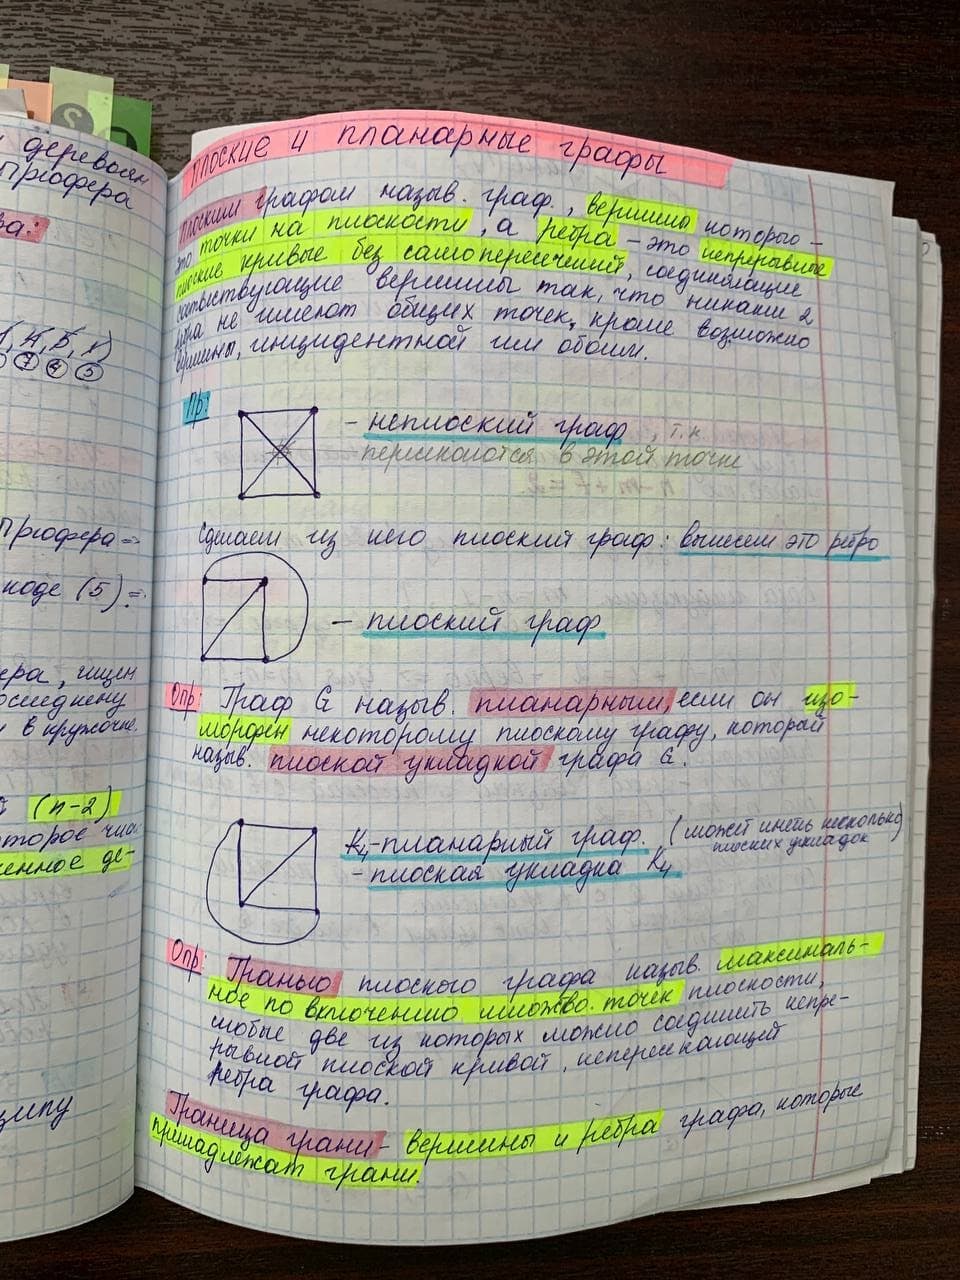 деревьям
Прюфера
ва:
Прюфера =>
коде (5) =>
ера, ищем
в кружочке.
(n-2)
которое чис
женное де-
ципу
Плоские и планарные графы
Плоским графом назыв. граф, вершины которого -
это точки на плоскости, а ребра - это непрерывные
плоские кривые без самопересечений, соединяющие
соответствующие вершины так, что никакие 2
ребра не имеют общих точек, кроме возможно
вершины, инцидентной им обоим.
Пр:
- неплоский граф, т.к
пересекаются в этой точке
n - m + f = 2.
Сделаем из него плоский граф: вынесем это ребро
- плоский граф
Опр: Граф G назыв. планарным, если он изо-
морфен некоторому плоскому графу, который
назыв. плоской укладкой графа G.
K₄ - планарный граф. (может иметь несколько
плоских укладок)
- плоская укладка K₄
Опр: Гранью плоского графа назыв. максималь-
ное по включению множтво. точек плоскости,
любые две из которых можно соединить непре-
рывной плоской кривой, непересекающей
ребра графа.
Граница грани - вершины и ребра графа, которые
принадлежат грани.